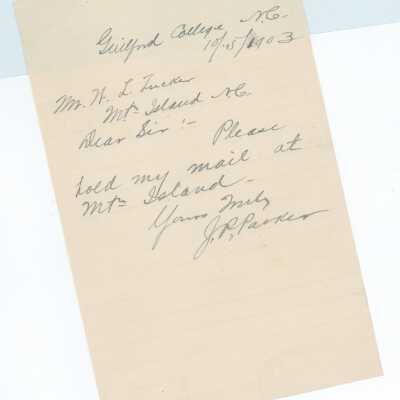 Guilford College, N.C.
10/15/1903
Mr. H. L. Tucker
Mtn Island N.C.
Dear Sir:- Please
hold my mail at
Mtn Island -
Yours Truly
J. P. Parker